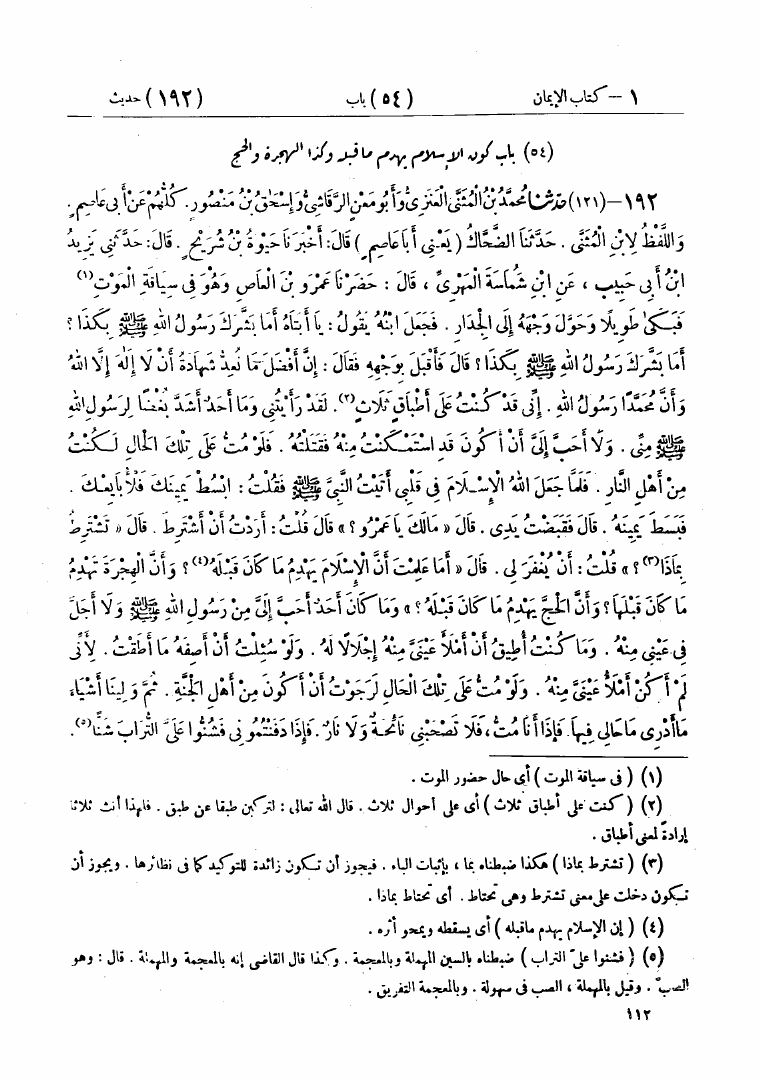 ١ – كتاب الإيمان (٥٤) باب (١٩٢) حديث
(٥٤) باب كون الإسلام يهدم ما قبله وكذا الهجرة والحج
١٩٢ – (١٢١) حدثنا مُحَمَّدُ بْنُ الْمُثَنَّى الْعَنَزِيُّ وَأَبُو مَعْنٍ الرَّقَاشِيُّ وَإِسْحَاقُ بْنُ مَنْصُورٍ. كُلُّهُمْ عَنْ أَبِي عَاصِمٍ.
وَاللَّفْظُ لِابْنِ الْمُثَنَّى. حَدَّثَنَا الضَّحَّاكُ (يَعْنِي أَبَا عَاصِمٍ) قَالَ: أَخْبَرَنَا حَيْوَةُ بْنُ شُرَيْحٍ. قَالَ: حَدَّثَنِي يَزِيدُ
ابْنُ أَبِي حَبِيبٍ، عَنِ ابْنِ شُمَاسَةَ الْمَهْرِيِّ، قَالَ: حَضَرْنَا عَمْرَو بْنَ الْعَاصِ وَهُوَ فِي سِيَاقَةِ الْمَوْتِ(١)
فَبَكَى طَوِيلًا وَحَوَّلَ وَجْهَهُ إِلَى الْجِدَارِ. فَجَعَلَ ابْنُهُ يَقُولُ: يَا أَبَتَاهُ أَمَا بَشَّرَكَ رَسُولُ اللهِ ﷺ بِكَذَا؟
أَمَا بَشَّرَكَ رَسُولُ اللهِ ﷺ بِكَذَا؟ قَالَ فَأَقْبَلَ بِوَجْهِهِ فَقَالَ: إِنَّ أَفْضَلَ مَا نُعِدُّ شَهَادَةُ أَنْ لَا إِلَهَ إِلَّا اللهُ
وَأَنَّ مُحَمَّدًا رَسُولُ اللهِ. إِنِّي قَدْ كُنْتُ عَلَى أَطْبَاقٍ ثَلَاثٍ(٢). لَقَدْ رَأَيْتُنِي وَمَا أَحَدٌ أَشَدَّ بُغْضًا لِرَسُولِ اللهِ
ﷺ مِنِّي. وَلَا أَحَبَّ إِلَيَّ أَنْ أَكُونَ قَدِ اسْتَمْكَنْتُ مِنْهُ فَقَتَلْتُهُ. فَلَوْ مُتُّ عَلَى تِلْكَ الْحَالِ لَكُنْتُ
مِنْ أَهْلِ النَّارِ. فَلَمَّا جَعَلَ اللهُ الْإِسْلَامَ فِي قَلْبِي أَتَيْتُ النَّبِيَّ ﷺ فَقُلْتُ: ابْسُطْ يَمِينَكَ فَلْأُبَايِعْكَ.
فَبَسَطَ يَمِينَهُ. قَالَ فَقَبَضْتُ يَدِي. قَالَ «مَالَكَ يَا عَمْرُو؟» قَالَ قُلْتُ: أَرَدْتُ أَنْ أَشْتَرِطَ. قَالَ «تَشْتَرِطُ
بِمَاذَا(٣)؟» قُلْتُ: أَنْ يُغْفَرَ لِي. قَالَ «أَمَا عَلِمْتَ أَنَّ الْإِسْلَامَ يَهْدِمُ مَا كَانَ قَبْلَهُ(٤)؟ وَأَنَّ الْهِجْرَةَ تَهْدِمُ
مَا كَانَ قَبْلَهَا؟ وَأَنَّ الْحَجَّ يَهْدِمُ مَا كَانَ قَبْلَهُ؟» وَمَا كَانَ أَحَدٌ أَحَبَّ إِلَيَّ مِنْ رَسُولِ اللهِ ﷺ وَلَا أَجَلَّ
فِي عَيْنِي مِنْهُ. وَمَا كُنْتُ أُطِيقُ أَنْ أَمْلَأَ عَيْنَيَّ مِنْهُ إِجْلَالًا لَهُ. وَلَوْ سُئِلْتُ أَنْ أَصِفَهُ مَا أَطَقْتُ. لِأَنِّي
لَمْ أَكُنْ أَمْلَأُ عَيْنَيَّ مِنْهُ. وَلَوْ مُتُّ عَلَى تِلْكَ الْحَالِ لَرَجَوْتُ أَنْ أَكُونَ مِنْ أَهْلِ الْجَنَّةِ. ثُمَّ وَلِينَا أَشْيَاءَ
مَا أَدْرِي مَا حَالِي فِيهَا. فَإِذَا أَنَا مُتُّ، فَلَا تَصْحَبْنِي نَائِحَةٌ وَلَا نَارٌ. فَإِذَا دَفَنْتُمُونِي فَشُنُّوا عَلَيَّ التُّرَابَ شَنًّا(٥).
(١) (في سياقة الموت) أي حال حضور الموت.
(٢) (كنت على أطباق ثلاث) أي على أحوال ثلاث. قال الله تعالى: لتركبن طبقا عن طبق. فلهذا أنث ثلاثا
إرادةً لمعنى أطباق.
(٣) (تشترط بماذا) هكذا ضبطناه بما، بإثبات الباء. فيجوز أن تكون زائدة للتوكيد كما في نظائرها. ويجوز أن
تكون دخلت على معنى تشترط وهى تحتاط. أي تحتاط بماذا.
(٤) (إن الإسلام يهدم ماقبله) أي يسقطه ويمحو أثره.
(٥) (فشنوا علىّ التراب) ضبطناه بالسين المهملة وبالمعجمة. وكذا قال القاضى إنه بالمعجمة والمهملة. قال: وهو
الصبّ. وقيل بالمهملة، الصب فى سهولة. وبالمعجمة التفريق.
١١٢